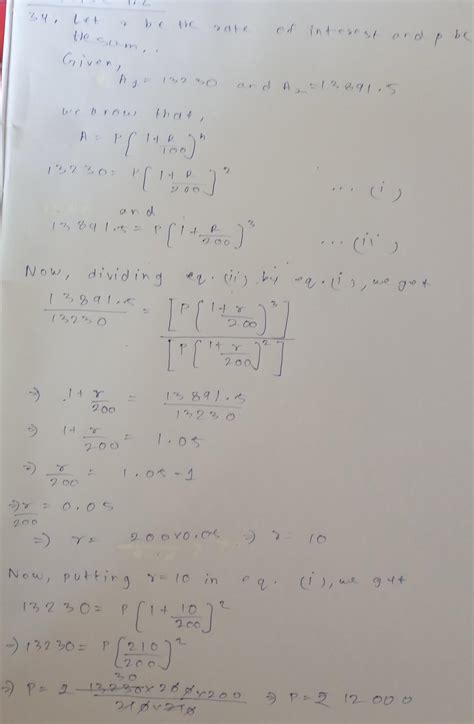 34. Let r be the rate of interest and p be
the sum.
Given,
A₂ = 13230 and A₃ = 13891.5
we know that,
A = P[1+R/100]ⁿ
13230 = P[1+R/200]² ... (i)
and
13891.5 = P[1+R/200]³ ... (ii)
Now, dividing eq. (ii) by eq. (i), we get
13891.5/13230 = [P(1+r/200)³]/[P(1+r/200)²]
⇒ 1+r/200 = 13891.5/13230
⇒ 1+r/200 = 1.05
⇒ r/200 = 1.05-1
⇒ r/200 = 0.05
⇒ r = 200×0.05 ⇒ r = 10
Now, putting r=10 in eq. (i), we get
13230 = P[1+10/200]²
⇒ 13230 = P[210/200]²
30
⇒ P = 13230×200×200/210×210 ⇒ P = 12000